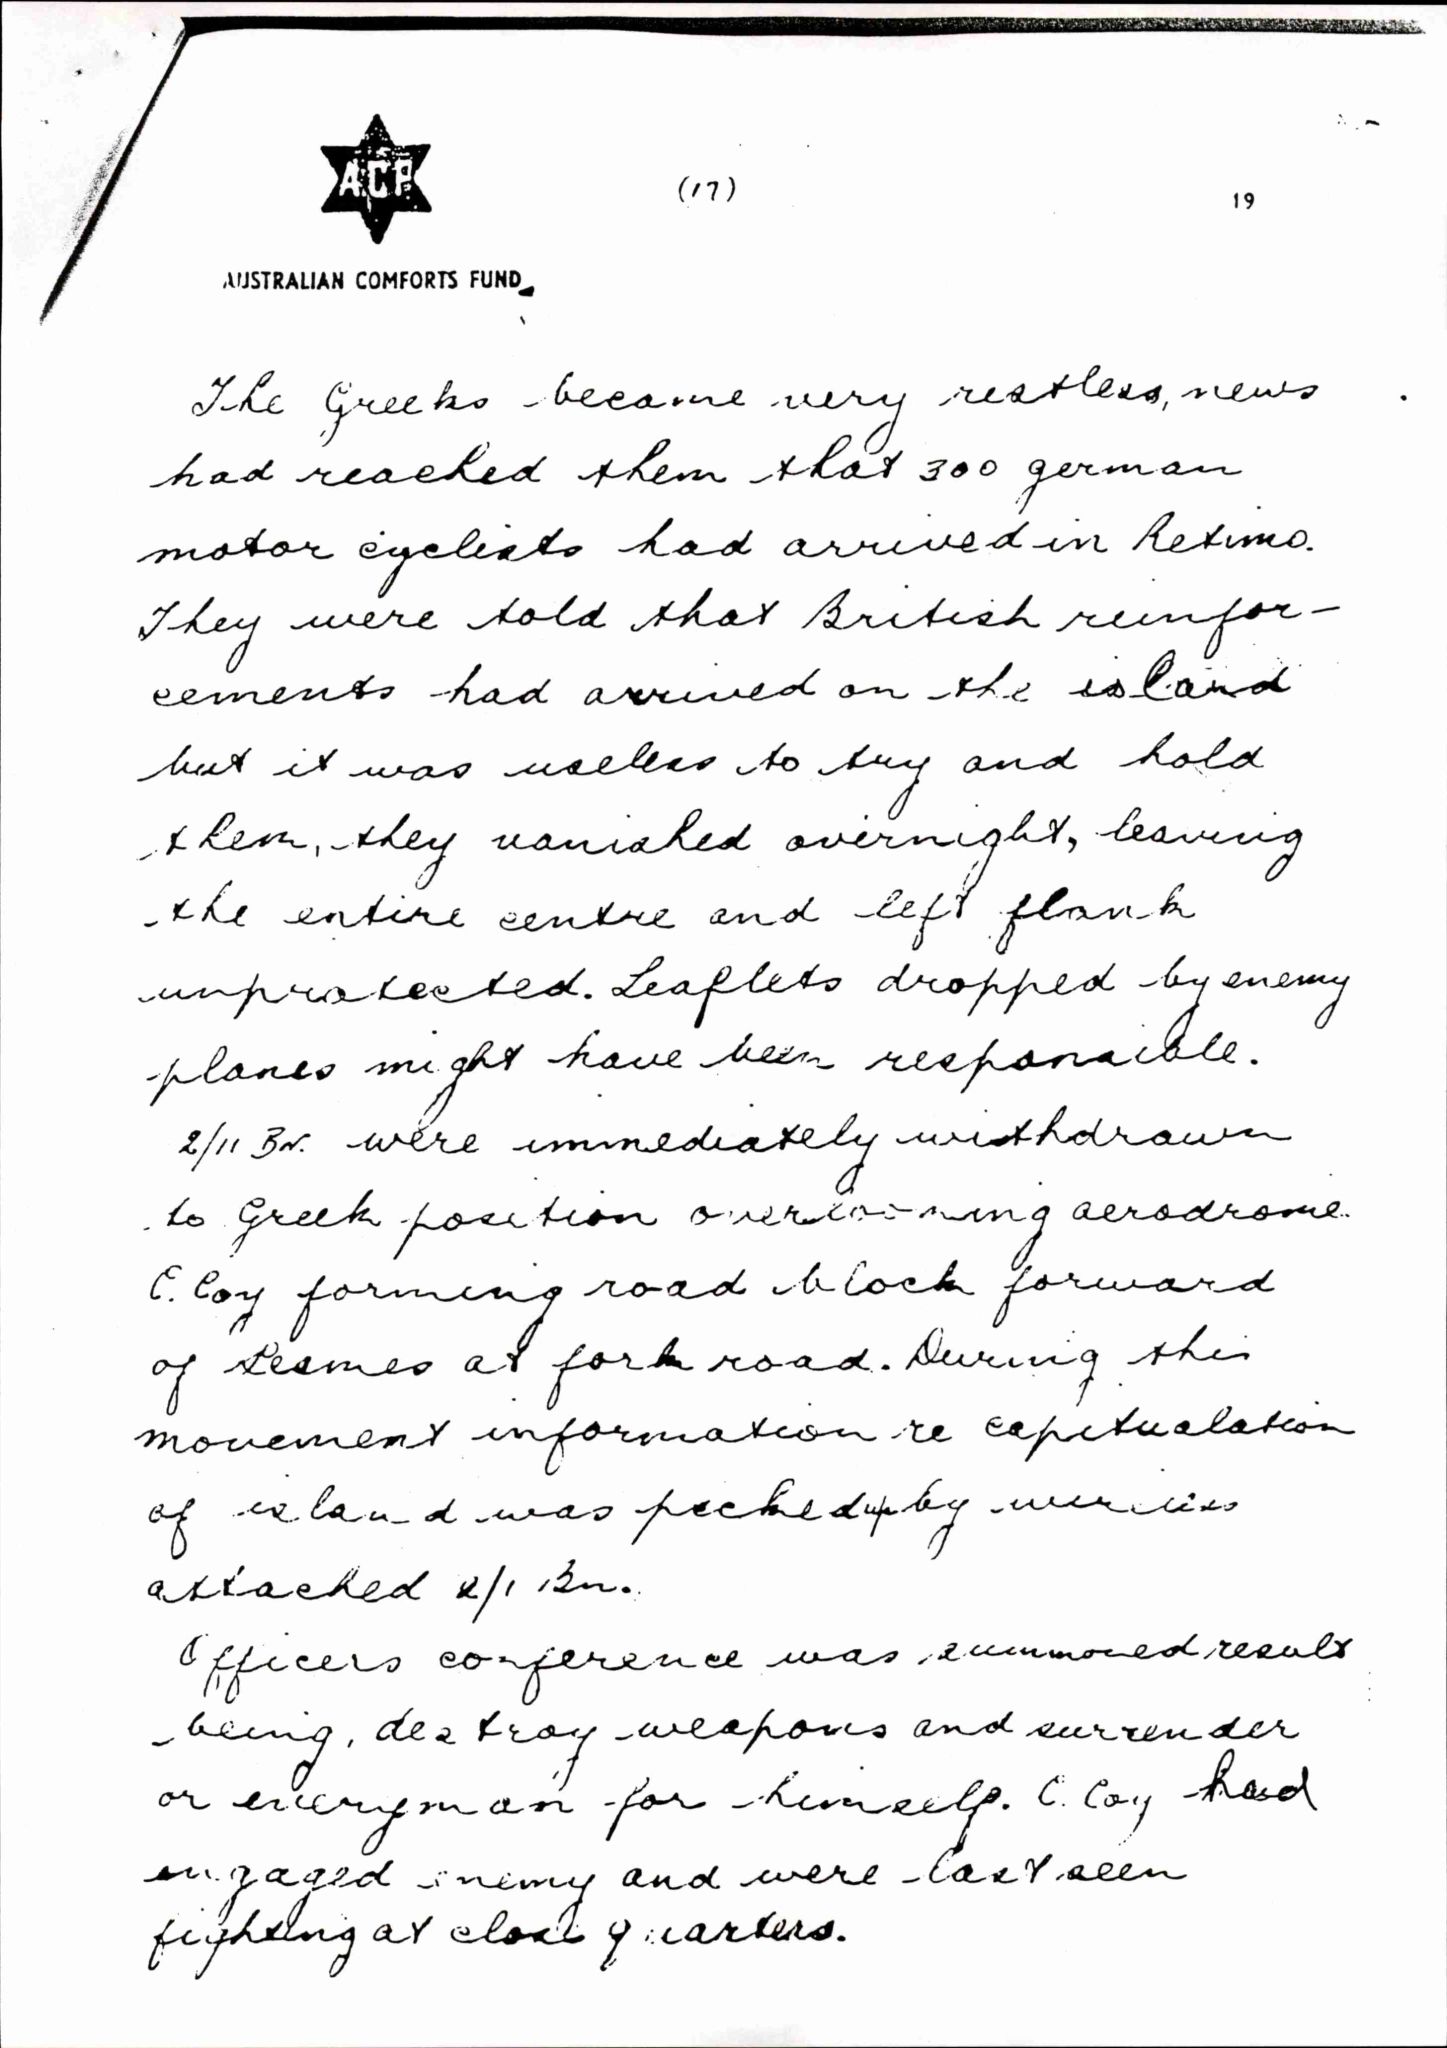 ACF
(17)
19
AUSTRALIAN COMFORTS FUND
The Greeks became very restless, news
had reached them that 300 german
motor cyclists had arrived in Retimo.
They were told that British reinfor-
cements had arrived on the island
but it was useless to try and hold
them, they vanished overnight, leaving
the entire centre and left flank
unprotected. Leaflets dropped by enemy
planes might have been responsible.
2/11 BN. were immediately withdrawn
to Greek position overlooking aerodrome.
C. Coy forming road block forward
of at fork road. During this
movement information re capitualation
of island was picked up by wireless
attached 2/1 Bn.
Officers conference was summoned result
being, destroy weapons and surrender
or everyman for himself. C. Coy had
engaged enemy and were last seen
fighting at close quarters.